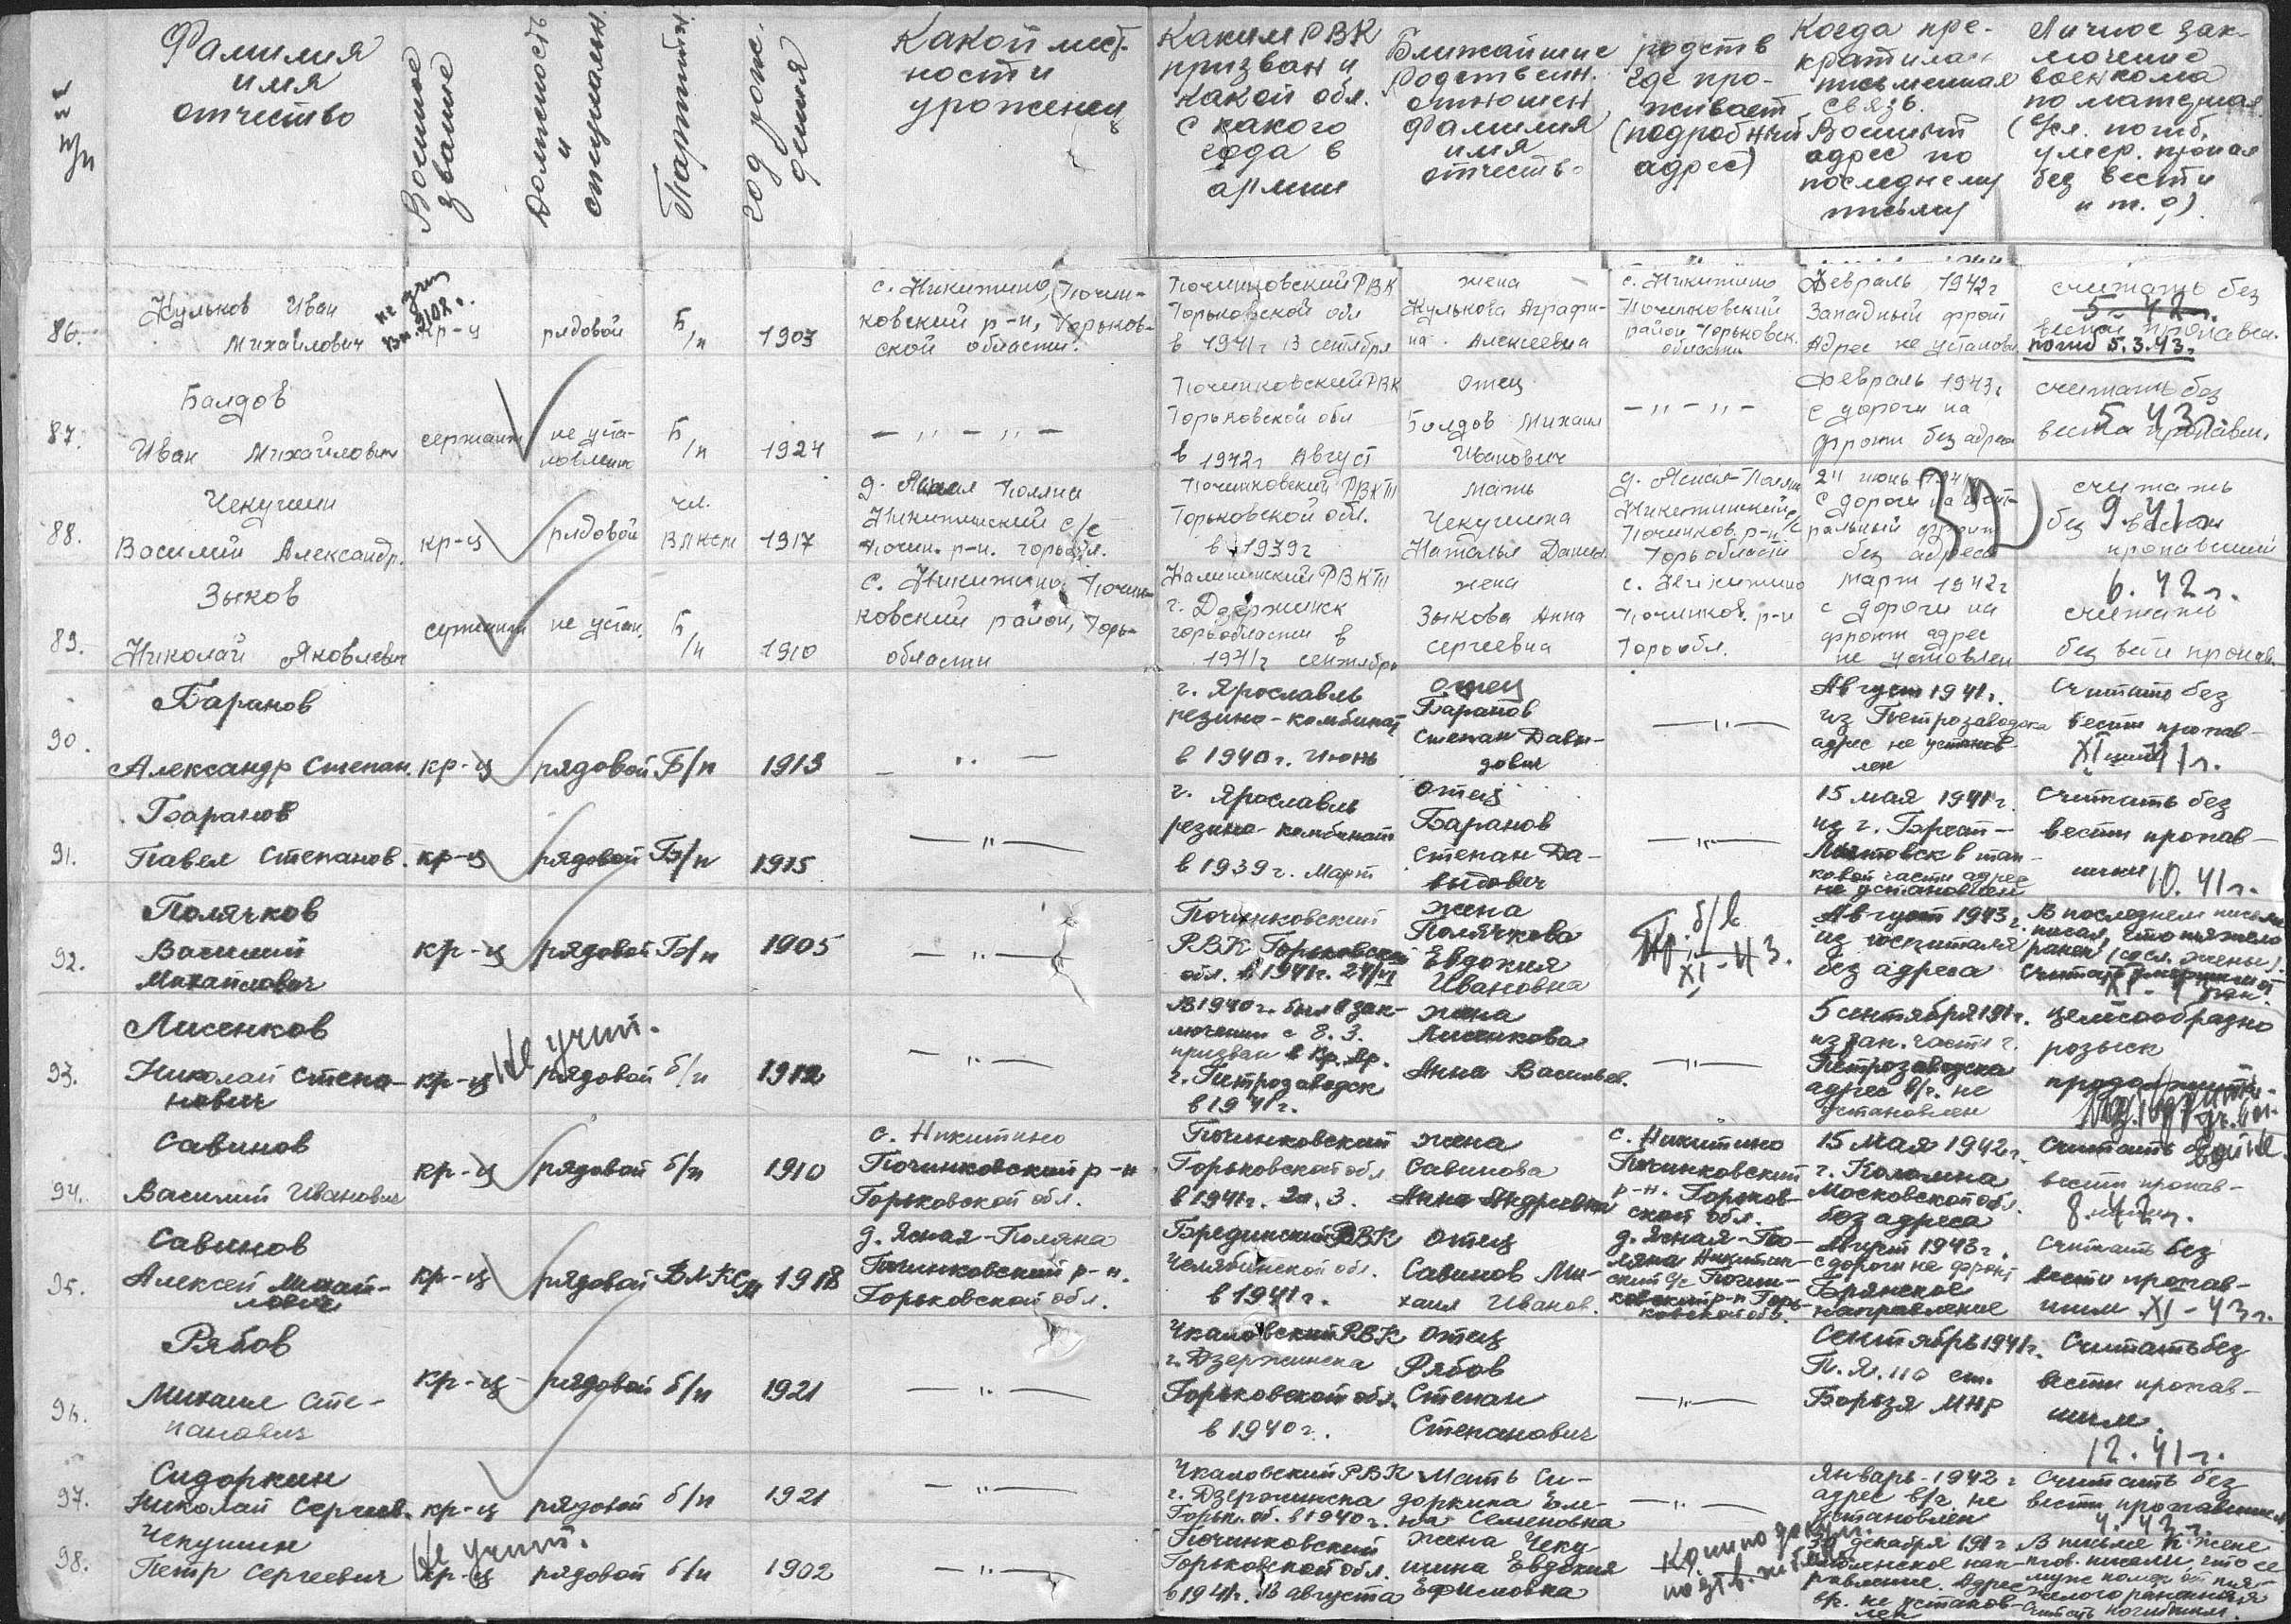 №№ п/п
Фамилия
имя
отчество
Военное
звание
Должность
и
специальн.
Партийн.
год рож-
дения
Какой мест-
ности
уроженец
Каким РВК
призван и
какой обл.
с какого
года в
армии
Ближайшие
родственн.
отношен.
Фамилия
имя
отчество
родств
Где про-
живает
(подробный
адрес)
Когда пре-
кратилась
письменная
связь.
Воинский
адрес по
последнему
письму
Личное зак-
лючение
военкома
по материал.
(Усл. погиб,
умер, пропал
без вести
и т. д.)
86.
Кульков Иван
Михайлович
не учит.
кр-ц
рядовой
Б/п
1903
с. Никитино, Почин-
ковский р-н, Горьков-
ской области.
Починковский РВК
Горьковской обл
в 1941г В сентября
жена
Кулькова Аграфи-
на Алексеевна
с. Никитино
Починковский
район Горьковск.
области
Февраль 1942г
Западный фронт
Адрес не установл
считать без
5-42г.
вести пропавш.
погиб 5.3.43г.
87.
Балдов
Иван Михайлович
сержант
не уста-
новлено
Б/п
1924
— ,, — ,, —
Починковский РВК
Горьковской обл
в 1942г Август
отец
Болдов Михаил
Иванович
— ,, — ,, —
Февраль 1943г
с дороги на
фронт без адреса
считать без
5.43г.
вести пропавш.
88.
Чекушин
Василий Александр.
кр-ц
рядовой
чл.
ВЛКСМ
1917
д. Ясная Поляна
Никитинский с/с
Почин. р-н. горьобл.
Починковский РВКТП
Горьковской обл.
в 1939г
мать
Чекушина
Наталья Данил.
д. Ясная-Поляна
Никитинский с/с
Починков. р-н
Горьобласти
24 июнь 1941г
с дороги на цент-
ральный фронт
без адреса
считать
9.41г.
без вести
пропавший
89.
Зыков
Николай Яковлевич
сержант
не устан.
Б/п
1910
с. Никитино, Почин-
ковский район, Горь-
области
Калининский РВКТП
г. Дзержинск
горьобласти в
1941г сентября
жена
Зыкова Анна
Сергеевна
с. Никитино
Починков. р-н
Горьобл.
март 1942г
с дороги на
фронт адрес
не установлен
6.42г.
считать
без вести пропав.
90.
Баранов
Александр Степан.
кр-ц
рядовой
Б/п
1913
— ,, —
г. Ярославль
резино-комбинат
в 1940г. Июнь
отец
Баранов
Степан Давы-
дович
— ,, —
Август 1941г.
из Петрозаводска
адрес не установ-
лен
Считать без
вести пропав-
шим
XI 41г.
91.
Баранов
Павел Степанов.
кр-ц
рядовой
Б/п
1915
— ,, —
г. Ярославль
резино-комбинат
в 1939г. Март
отец
Баранов
Степан Да-
выдович
— ,, —
15 мая 1941г.
из г. Брест-
Литовск в тан-
ковой части адрес
не установлен
Считать без
вести пропав-
шим 10.41г.
92.
Полячков
Василий
Михайлович
кр-ц
рядовой
Б/п
1905
— ,, —
Починковский
РВК Горьковской
обл. в 1941г. 24/VI
жена
Полячкова
Евдокия
Ивановна
Пр. б/в
XI-43.
Август 1943г.
из госпиталя
без адреса
В последнем письме
писал, что тяжело
ранен (со сл. жены).
Считать умершим от
ран.
93.
Лисенков
Николай Степа-
нович
кр-ц
Не учит.
рядовой
б/п
1912
— ,, —
В 1940г. был в зак-
лючении с 8. 3.
призван в Кр. Ар.
г. Петрозаводск
в 1941г.
жена
Лисенкова
Анна Васильев.
— ,, —
5 сентября 1941г.
из зап. части г.
Петрозаводска
адрес в/ч. не
установлен
целесообразно
розыск
продолжить
94.
Савинов
Василий Иванович
кр-ц
рядовой
б/п
1910
с. Никитино
Починковский р-н
Горьковской обл.
Починковский
Горьковской обл
в 1941г. 3.
жена
Савинова
Анна Андреевна
с. Никитино
Починковский
р-н. Горьков-
ской обл.
15 мая 1942г.
г. Коломна
Московской обл.
без адреса
Считать без
вести пропав-
шим
8.42г.
95.
Савинов
Алексей Михай-
лович
кр-ц
рядовой
ВЛКСМ
1918
д. Ясная-Поляна
Починковский р-н.
Горьковской обл.
Брединский РВК
Челябинской обл.
в 1941г.
отец
Савинов Ми-
хаил Иванов.
д. Ясная-По-
ляна Никитин-
ский с/с Почин-
ковский р-н Горь-
ковской обл.
Август 1943г.
с дороги на фронт
Брянское
направление
Считать без
вести пропав-
шим XI-43г.
96.
Рябов
Михаил Сте-
панович
кр-ц
рядовой
б/п
1921
— ,, —
Чкаловский РВК
г. Дзержинска
Горьковской обл.
в 1940г.
отец
Рябов
Степан
Степанович
— ,, —
Сентябрь 1941г.
П. Я. 110 ст.
Борзя МНР
Считать без
вести пропав-
шим
12.41г.
97.
Сидоркин
Николай Сергеев.
кр-ц
рядовой
б/п
1921
— ,, —
Чкаловский РВК
г. Дзержинска
Горьк. об. в 1940г.
Мать Си-
доркина Еле-
на Семеновна
— ,, —
Январь-1942г
адрес в/ч. не
установлен
Считать без
вести пропавшим
4.42г.
98.
Чекушин
Петр Сергеевич
Не учит.
кр-ц
рядовой
б/п
1902
— ,, —
Починковский
Горьковской обл.
в 1941г. В августа
жена Чеку
шина Евдокия
Ефимовна
30 декабря 1941г
Смоленское нап-
равление. Адрес
в/ч. не установ-
лен
В письме к жене
тов. писали, что ее
муж помер от тя-
желого ранения
Считать погибшим.